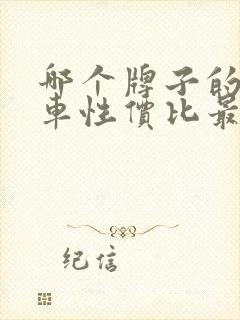 哪个牌子的
車性價比最
纪信